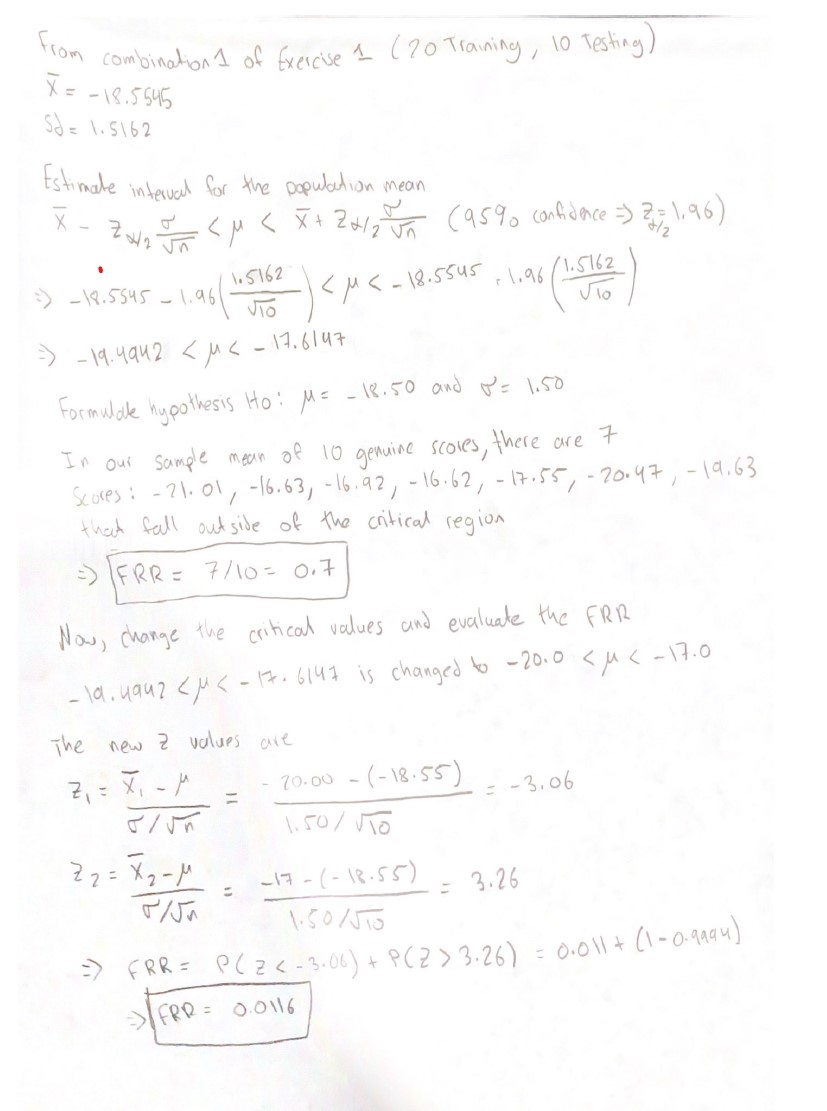 From combination 1 of Exercise 1 (20 Training, 10 Testing)
x̄ = -18.5545
Sd = 1.5162
Estimate interval for the population mean
x̄ - Zα/2 σ/√n < μ < x̄ + Zα/2 σ/√n (95% confidence => Zα/2 = 1.96)
=> -18.5545 - 1.96(1.5162/√10) < μ < -18.5545 + 1.96(1.5162/√10)
=> -19.4942 < μ < -17.6147
Formulate hypothesis Ho: μ = -18.50 and σ = 1.50
In our sample mean of 10 genuine scores, there are 7
Scores: -21.01, -16.63, -16.92, -16.62, -17.55, -20.47, -19.63
that fall outside of the critical region
=> FRR = 7/10 = 0.7
Now, change the critical values and evaluate the FRR
-19.4942 < μ < -17.6147 is changed to -20.0 < μ < -17.0
The new Z values are
Z₁ = (x̄₁ - μ)/(σ/√n) = (-20.00 - (-18.55))/(1.50/√10) = -3.06
Z₂ = (x̄₂ - μ)/(σ/√n) = (-17 - (-18.55))/(1.50/√10) = 3.26
=> FRR = P(Z < -3.06) + P(Z > 3.26) = 0.011 + (1 - 0.9994)
=> FRR = 0.0116